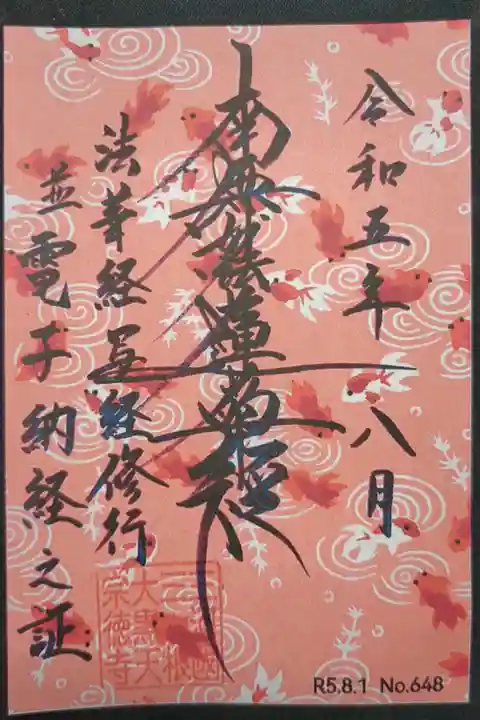 令和五年八月
南無妙法蓮華経
法華経写経修行
並電子納経之証
大馬天
崇徳寺
R5,8.1 No.648